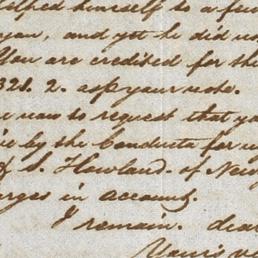 helped himself to a few
you, and yet he did no
You are credited for the
328. 2. as pr your note.
now to request that yo
me by the Conducta for
of S. Howland. of New
arges in account.
I remain. dear
Yours ve